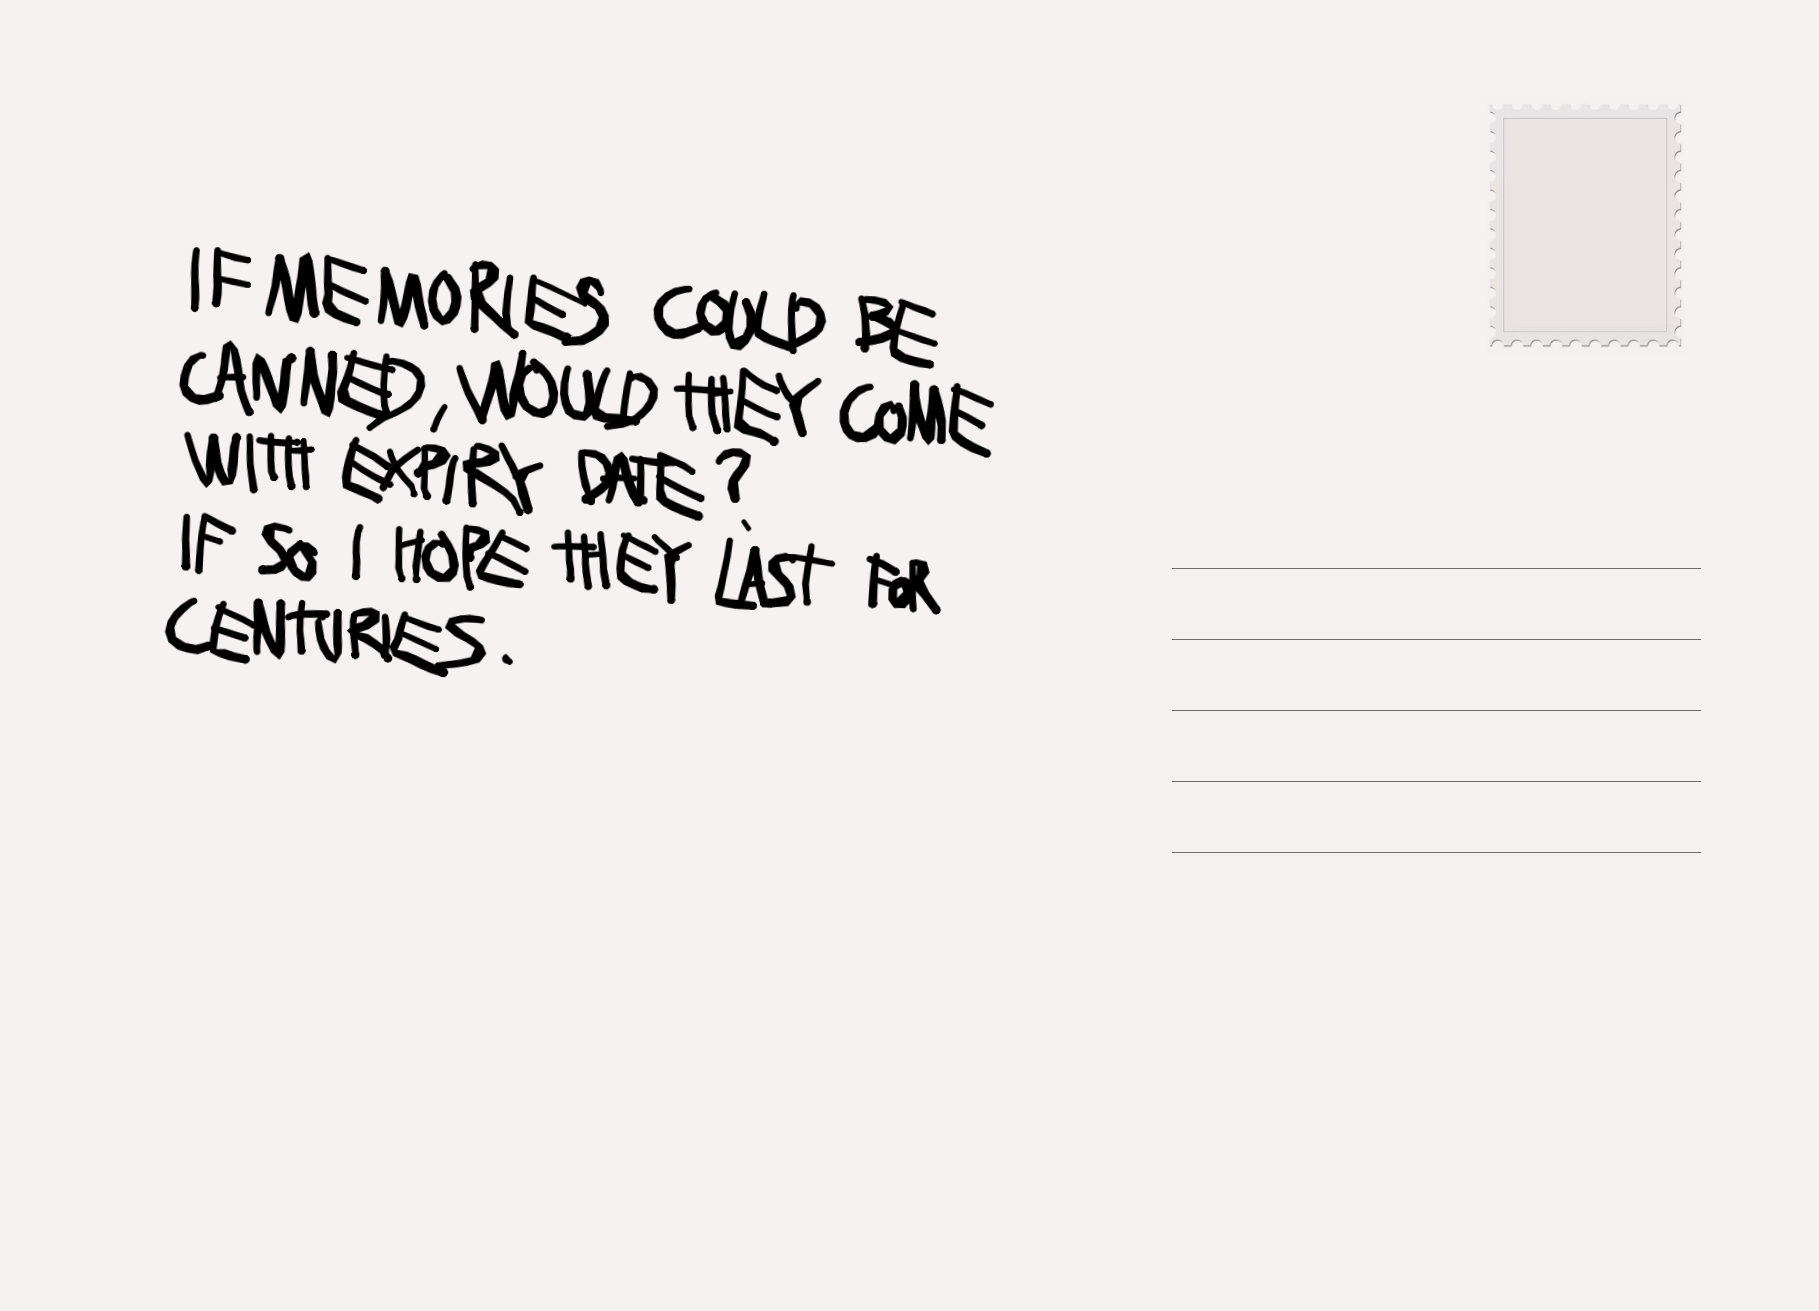 IF MEMORIES COULD BE
CANNED, WOULD THEY COME
WITH EXPIRY DATE?
IF SO I HOPE THEY LAST FOR
CENTURIES.